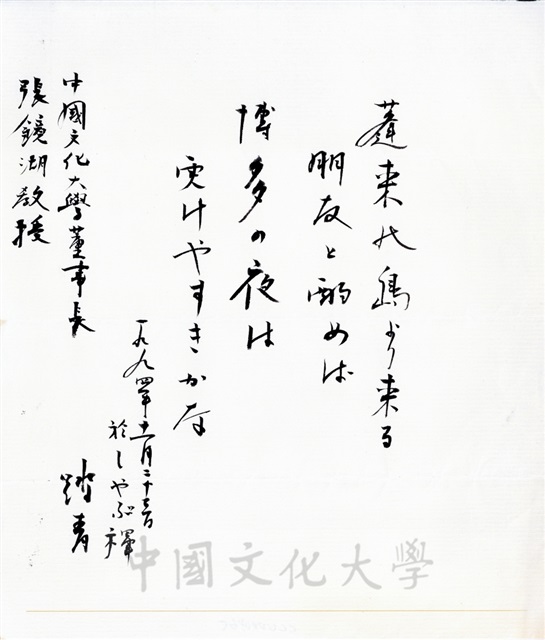 蓬来の島より来る
朋友と酌めば
博多の夜は
更けやすきかな
一九九四年十一月二十三日
於しやぶ禅
踏青
中國文化大學董事長
張鏡湖教授
中國文化大學